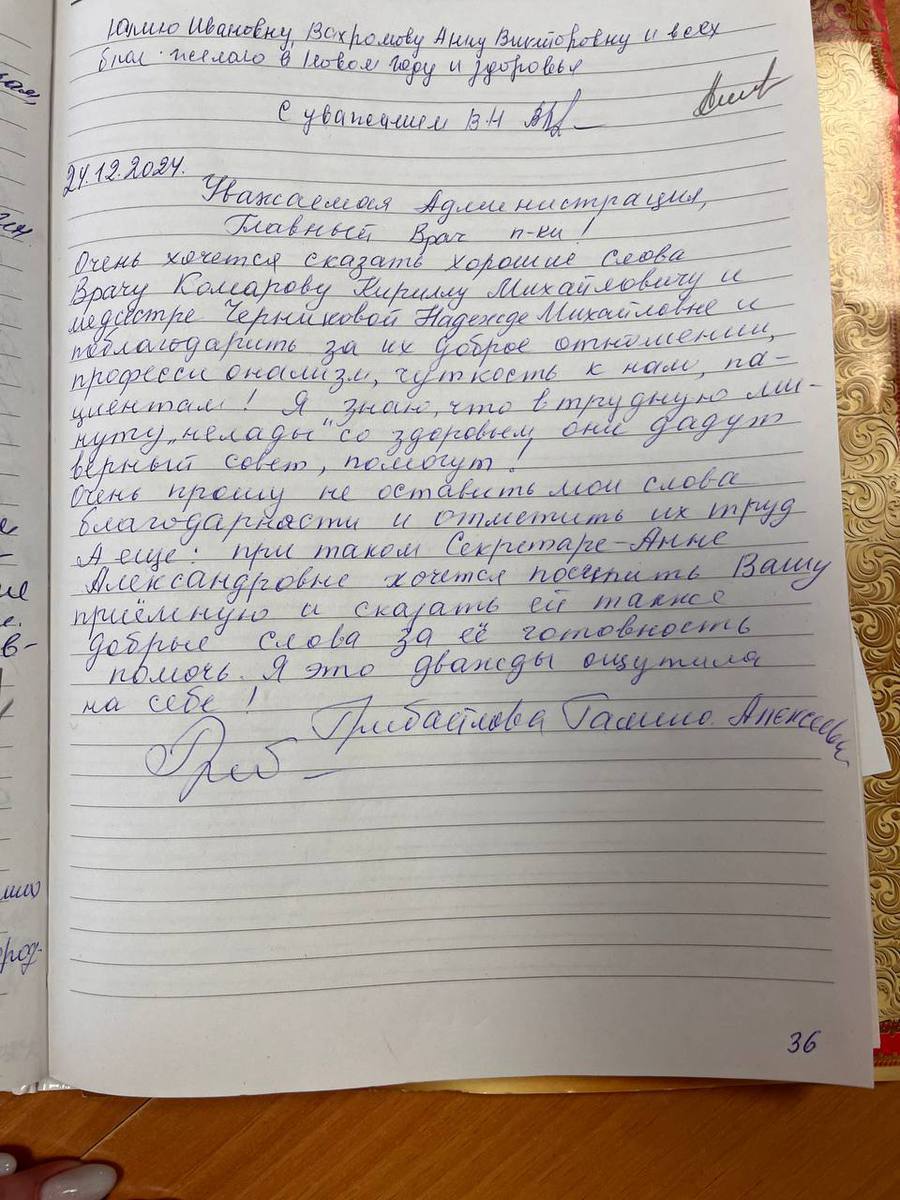 Юлию Ивановну, Вахромову Анну Викторовну и всех
благ желаю в Новом году и здоровья
С уважением В.Н
24.12.2024.
Уважаемая Администрация,
Главный Врач п-ки!
Очень хочется сказать хорошие слова
Врачу Комарову Кириллу Михайловичу и
медсестре Черниковой Надежде Михайловне и
поблагодарить за их доброе отношении,
профессионализм, чуткость к нам, па-
циентам! Я знаю, что в трудную ми-
нуту „нелады" со здоровьем, они дадут
верный совет, помогут!
Очень прошу не оставить мои слова
благодарности и отметить их труд
А еще: при таком Секретаре-Анне
Александровне хочется посетить Вашу
приёмную и сказать ей также
добрые слова за её готовность
помочь. Я это дважды ощутила
на себе!
Галина Алексеевна
36
ших